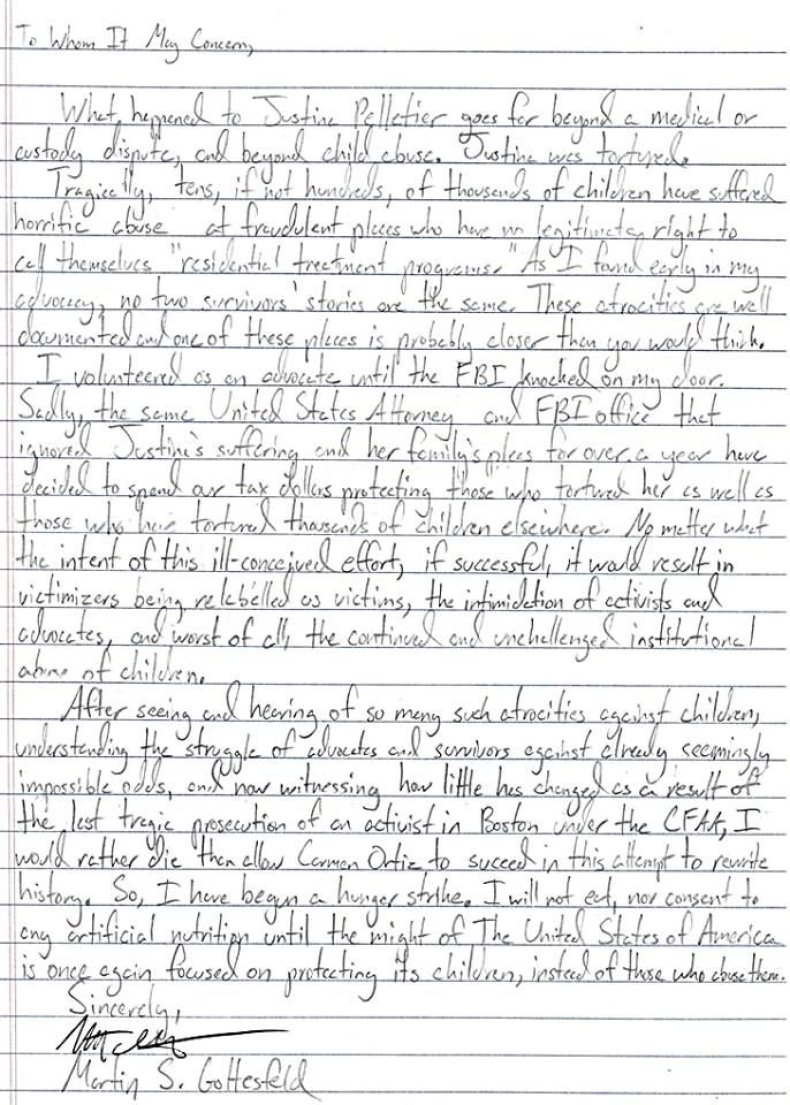 To Whom It May Concern,
What happened to Justina Pelletier goes far beyond a medical or
custody dispute, and beyond child abuse. Justina was tortured.
Tragically, tens, if not hundreds, of thousands of children have suffered
horrific abuse at fraudulent places who have no legitimate right to
call themselves "residential treatment programs." As I found early in my
advocacy, no two survivors' stories are the same. These atrocities are well
documented and one of these places is probably closer than you would think.
I volunteered as an advocate until the FBI knocked on my door.
Sadly, the same United States Attorney and FBI office that
ignored Justina's suffering and her family's pleas for over a year have
decided to spend our tax dollars protecting those who tortured her as well as
those who have tortured thousands of children elsewhere. No matter what
the intent of this ill-conceived effort, if successful, it would result in
victimizers being relabelled as victims, the intimidation of activists and
advocates, and worst of all, the continued and unchallenged institutional
abuse of children.
After seeing and hearing of so many such atrocities against children,
understanding the struggle of advocates and survivors against already seemingly
impossible odds, and now witnessing how little has changed as a result of
the last tragic prosecution of an activist in Boston under the CFAA, I
would rather die than allow Carmen Ortiz to succeed in this attempt to rewrite
history. So, I have begun a hunger strike. I will not eat, nor consent to
any artificial nutrition until the might of The United States of America
is once again focused on protecting its children, instead of those who abuse them.
Sincerely,
Martin S. Gottesfeld